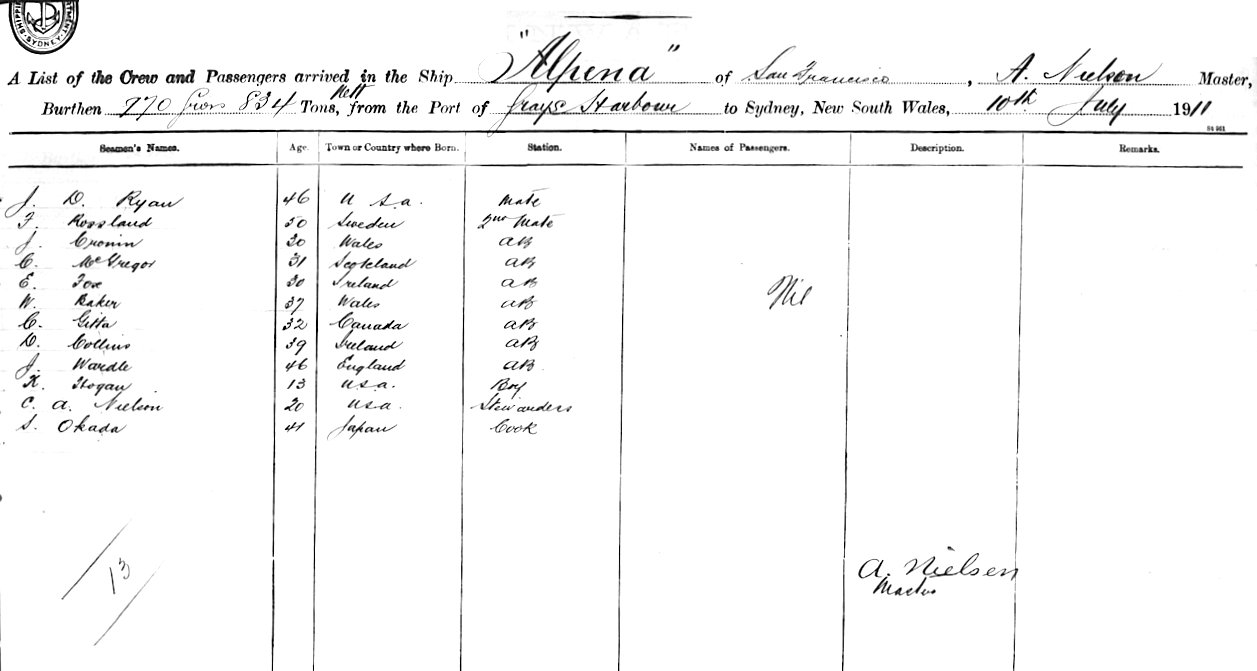 SHIPPING DEPARTMENT SYDNEY
A List of the Crew and Passengers arrived in the Ship "Alpena" of San Francisco, A. Nielson Master,
Burthen 970 Gross 834 Nett Tons, from the Port of Grays Harbour to Sydney, New South Wales, 10th July 1911
St 961
Seamen's Names. Age. Town or Country where Born. Station. Names of Passengers. Description. Remarks.
J. D. Ryan 46 U S.a. Mate
F. Rossland 50 Sweden 2nd Mate
J. Cronin 30 Wales AB
C. McGregor 31 Scotland AB
E. Fox 30 Ireland AB
Nil
W. Baker 37 Wales AB
C. Gitta 32 Canada AB
D. Collins 39 Ireland AB
J. Wardle 46 England AB.
K. Hogan 13 U.S.a. Boy
C. A. Nielson 20 U.S.a. Stewardess
S. Okada 41 Japan Cook
13
A. Nielsen
Master